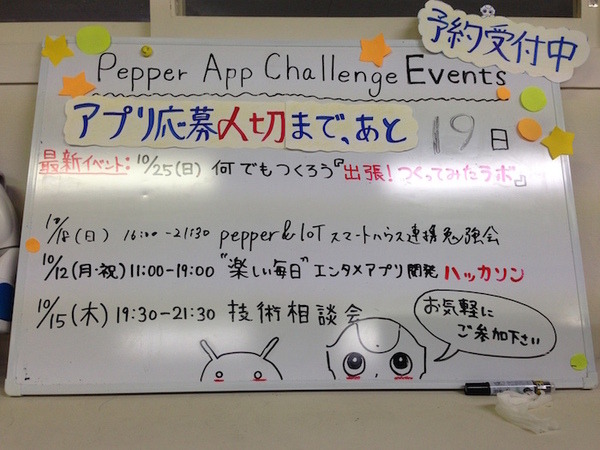 予約受付中
Pepper App Challenge Events
アプリ応募〆切まで、あと 19日
最新イベント: 10/25(日) 何でもつくろう『出張!つくってみたラボ』
10/18(日) 16:00-21:30 pepper&IoT スマートハウス連携勉強会
10/12(月・祝) 11:00-19:00 "楽しい毎日" エンタメアプリ開発 ハッカソン
10/15(木) 19:30-21:30 技術相談会
お気軽に
ご参加下さい